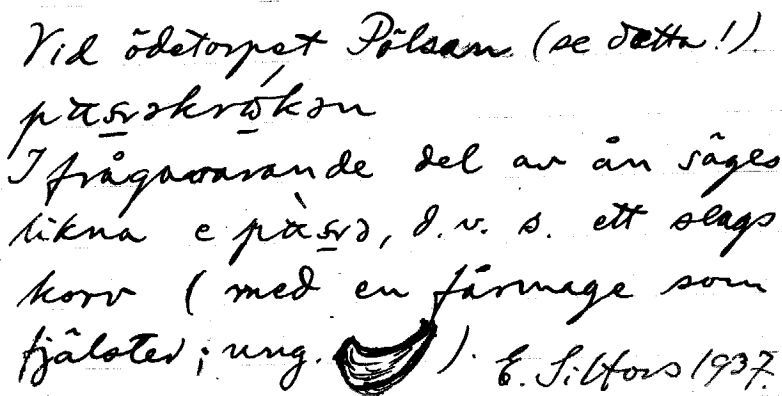 Vid ödetorpet Pölsan (se detta!).
I frågavarande del av ån säges
likna e d.v.s. ett slags
korv (med en fårmage som
fjälster; ung. ). E. Silfors 1937.